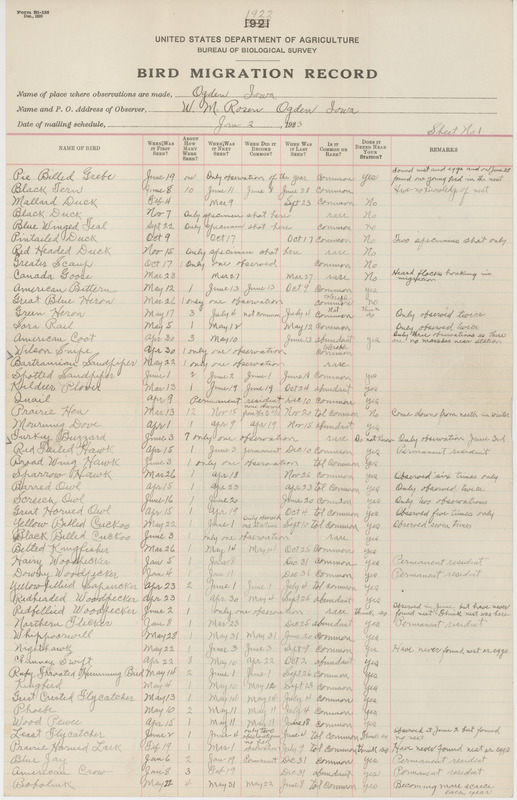 Form Bi-133
1922
1921
UNITED STATES DEPARTMENT OF AGRICULTURE
BUREAU OF BIOLOGICAL SURVEY
BIRD MIGRATION RECORD
Name of place where observations are made, Ogden Iowa
Name and P. O. Address of Observer, W. M. Rosen Ogden Iowa
Date of mailing schedule, Jan 2, 1923
Sheet No 1
NAME OF BIRD WHEN WAS IT FIRST SEEN? ABOUT HOW MANY WERE SEEN? WHEN WAS IT NEXT SEEN? WHEN DID IT BECOME COMMON? WHEN WAS IT LAST SEEN? IS IT COMMON OR RARE? DOES IT BREED NEAR YOUR STATION? REMARKS
Pie Billed Grebe June 19 on Only observation of the year Common yes Found nest and eggs and on June 28 found one young bird in the nest
Black Tern June 8 10 June 11 June 28 Common Have no knowledge of nest
Mallard Duck Feb 4 Mar 9 Sept 23 Common No
Black Duck Nov 7 Only specimen shot here rare No
Blue Winged Teal Sept 22 Only specimen shot here common No
Pintailed Duck Oct 9 Oct 17 Oct 17 common No Two specimens shot only
Red Headed Duck Nov 15 Only specimen shot here rare No
Greater Scaup Oct 17 Only one observed common No
Canada Goose Mar 23 Mar 27 Mar 27 rare No Heard flocks honking in migration
American Bittern May 12 1 June 13 June 13 Oct 9 Common yes
Great Blue Heron Mar 26 1 only one observation common no
Green Heron May 17 3 July 4 not common July 4 Not common Think so Only observed twice
Sora Rail May 5 1 May 12 May 12 Common Only observed twice
American Coot Apr 20 3 May 10 June 13 abundant yes Only three observations as there are no marshes near station
Wilson Snipe Apr 30 1 only one observation common
Bartramian Sandpiper May 22 1 only one observation rare
Spotted Sandpiper June 1 June 2 June 1 June 18 Common yes
Killdeer Plover Mar 13 1 June 19 June 19 Oct 24 abundant yes
Quail Apr 9 Permanent resident Dec 10 common yes
Prairie Hen Mar 13 12 Nov 15 Nov 20 tol Common No Come down from north in winter
Mourning Dove Apr 1 1 Apr 9 Apr 19 Nov 15 abundant yes
Turkey Buzzard June 3 7 only one observation rare Do not know Only observation June 3rd
Red Tailed Hawk Apr 15 1 June 3 permanent Dec 10 Common yes Permanent resident
Broad Wing Hawk June 3 1 only one observation tol Common yes
Sparrow Hawk Mar 26 1 Apr 18 Nov 25 Common yes Observed six times only
Barred Owl Apr 15 1 Apr 23 Apr 23 tol Common yes Only observed twice
Screech Owl June 16 1 June 20 June 20 Common yes Only two observations
Great Horned Owl Apr 15 1 Apr 19 Oct 4 tol Common yes Observed five times only
Yellow Billed Cuckoo May 22 1 June 1 Sept 10 tol Common yes Observed seven times
Black Billed Cuckoo June 3 only one observation rare yes
Belted Kingfisher Mar 26 1 May 14 May 14 Oct 25 Common yes
Hairy Woodpecker Jan 5 1 Jan 8 Dec 31 Common yes Permanent resident
Downy Woodpecker Jan 6 1 Jan 11 Dec 31 Common yes Permanent resident
Yellowbellied Sapsucker Apr 23 2 June 1 June 1 July 4 tol Common yes
Redheaded Woodpecker Apr 23 Apr 30 May 4 Sept 26 abundant yes
Redbellied Woodpecker June 2 1 only one observation rare think so Observed in June, but have never found nest. Think nest was here
Northern Flicker Jan 8 1 Mar 23 Dec 26 abundant yes Permanent resident
Whippoorwill May 28 1 May 31 May 31 June 20 Common yes
Nighthawk May 22 1 June 3 June 3 Sept 9 Common yes Have never found nest or eggs
Chimney Swift Apr 22 8 May 10 Apr 22 Oct 2 abundant yes
Ruby Throated Humming Bird May 14 2 June 1 June 1 Sept 26 Common yes
Kingbird May 4 1 May 10 May 12 Sept 23 Common yes
Great Crested Flycatcher May 13 1 May 14 May 14 July 4 Common yes
Phoebe May 10 2 May 11 May 11 July 4 Common yes
Wood Pewee Apr 15 1 May 11 May 11 June 18 Common yes
Least Flycatcher June 2 1 June 4 July 4 tol Common Think so Observed it June 2 but found no nest
Prairie Horned Lark Feb 19 1 Mar 1 July 9 tol Common think so Have never found nest or eggs
Blue Jay Jan 6 2 Jan 19 Permanent Dec 31 Common yes Permanent resident
American Crow Jan 8 3 Feb 19 Dec 31 abundant yes Permanent resident
Bobolink May 2 4 May 31 May 22 June 8 tol Common yes Becoming more scarce each year